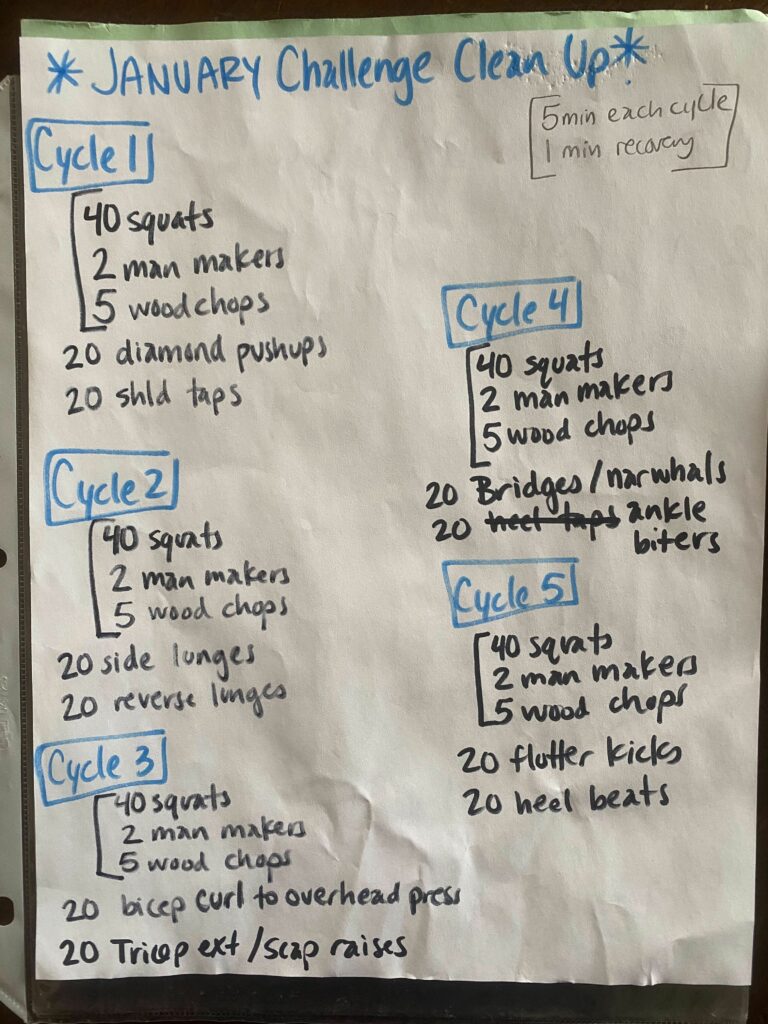 *JANUARY Challenge Clean Up*
5 min each cycle
1 min recovery
Cycle 1
40 squats
2 man makers
5 woodchops
20 diamond pushups
20 shld taps
Cycle 2
40 squats
2 man makers
5 wood chops
20 side lunges
20 reverse lunges
Cycle 3
40 squats
2 man makers
5 wood chops
20 bicep curl to overhead press
20 Tricep ext/scap raises
Cycle 4
40 squats
2 man makers
5 wood chops
20 Bridges/narwhals
20 heel taps ankle
biters
Cycle 5
40 squats
2 man makers
5 wood chops
20 flutter kicks
20 heel beats